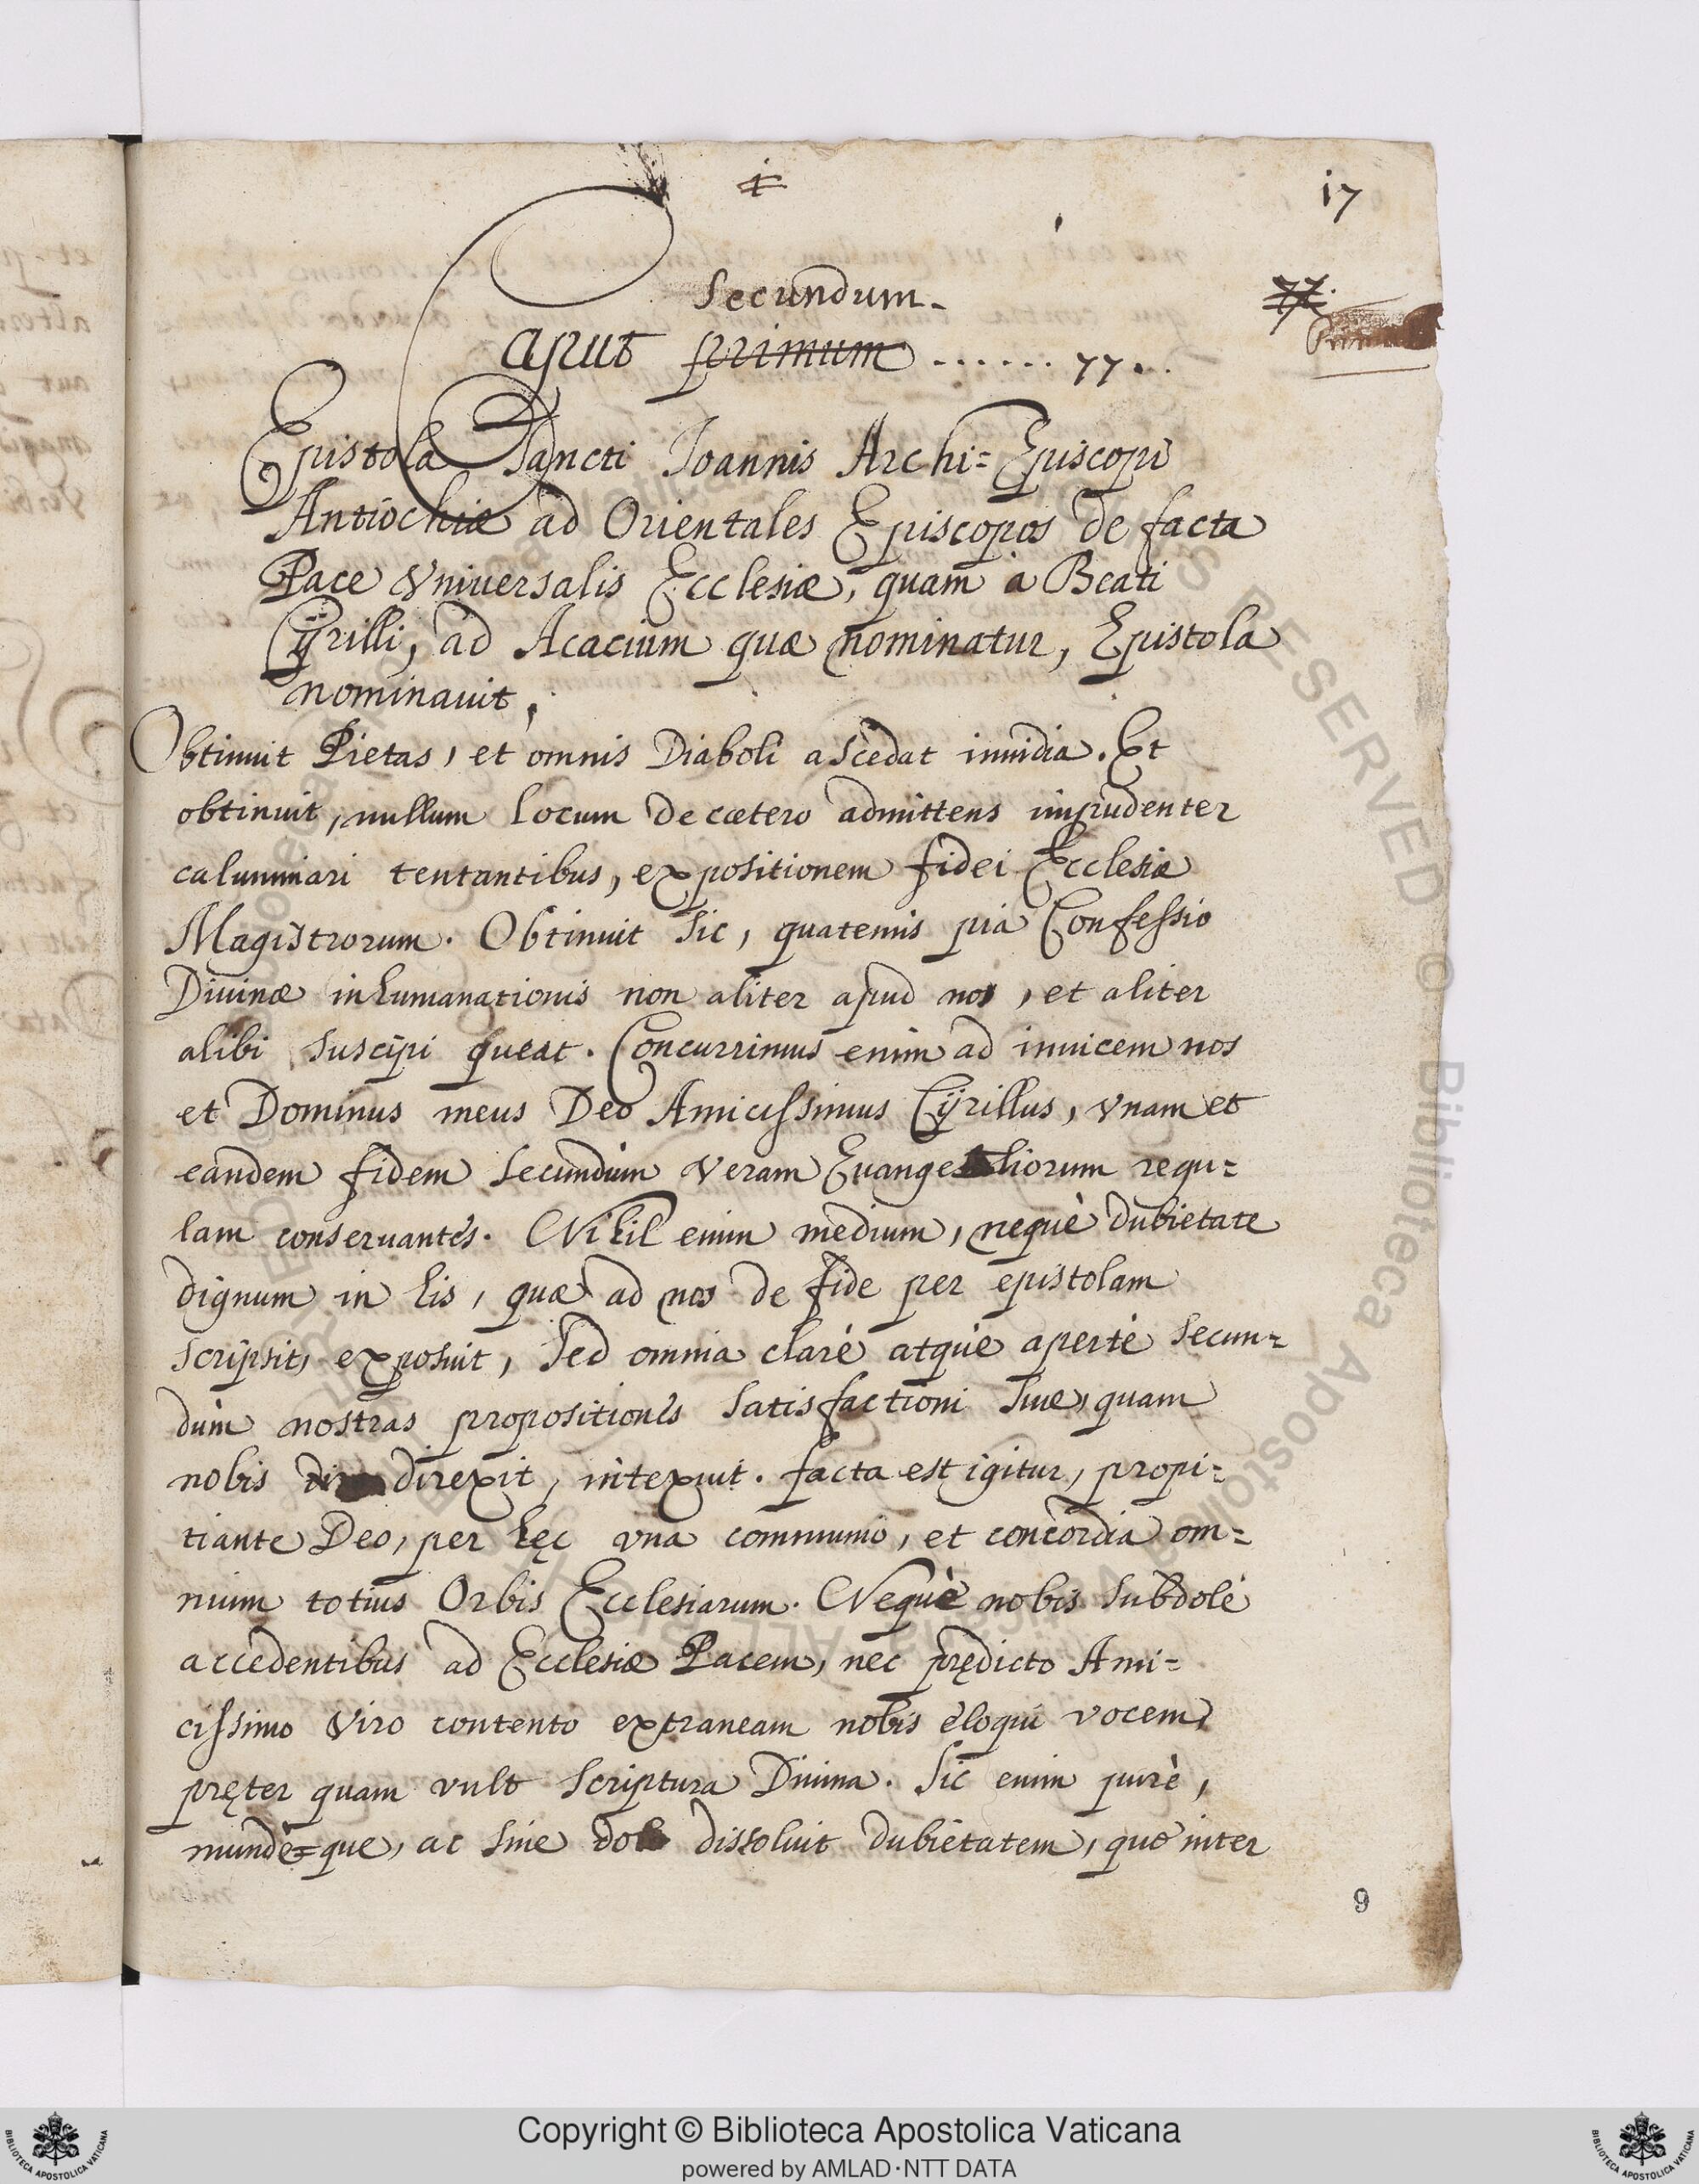 i7
77.
Secundum.
Caput primum ...... 77..
Epistola Sancti Ioannis Archi= Episcopi
Antiochiæ ad Orientales Episcopos de facta
Pace Vniuersalis Ecclesiæ, quam à Beati
Cÿrilli, ad Acacium quæ nominatur, Epistola
nominauit,
Obtinuit Pietas, et omnis Diaboli ascedat inuidia. Et
obtinuit, nullum locum de cætero admittens imprudenter
calumniari tentantibus, expositionem fidei Ecclesiæ
Magistrorum. Obtinuit sic, quatenus pia Confessio
Diuinæ inhumanationis non aliter apud nos, et aliter
alibi suscipi queat. Concurrimus enim ad inuicem nos
et Dominus meus Deo Amicissimus Cÿrillus, vnam et
eandem fidem secundum veram Euangeliorum regu=
lam conseruantes. Nihil enim medium, nequè dubietate
dignum in his, quæ ad nos de fide per epistolam
scripsit, exposuit, sed omnia clarè atquè apertè secun=
dùm nostras propositiones satisfactioni suæ, quam
nobis direxit, intexuit. facta est igitur, propi=
tiante Deo, per hęc vna communio, et concordia om=
nium totius Orbis Ecclesiarum. Nequè nobis subdolè
accedentibus ad Ecclesiæ Pacem, nec prędicto Ami=
cissimo Viro contento extraneam nobis eloqui vocem,
pręter quam vult scriptura Diuina. Sic enim purè,
mundè=que, ac sine dolo dissoluit dubietatem, quæ inter
9
RESERVED © Biblioteca Apostolica Vaticana
Copyright © Biblioteca Apostolica Vaticana
powered by AMLAD·NTT DATA
BIBLIOTECA APOSTOLICA VATICANA
BIBLIOTECA APOSTOLICA VATICANA